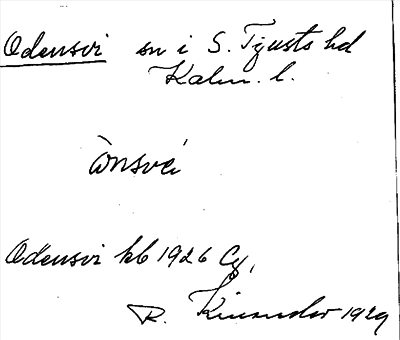 Odensvi sn i S. Tjusts hd
Kalm. l.
ònsvi
Odensvi kb 1926 Cy,
R. Kinander 1929